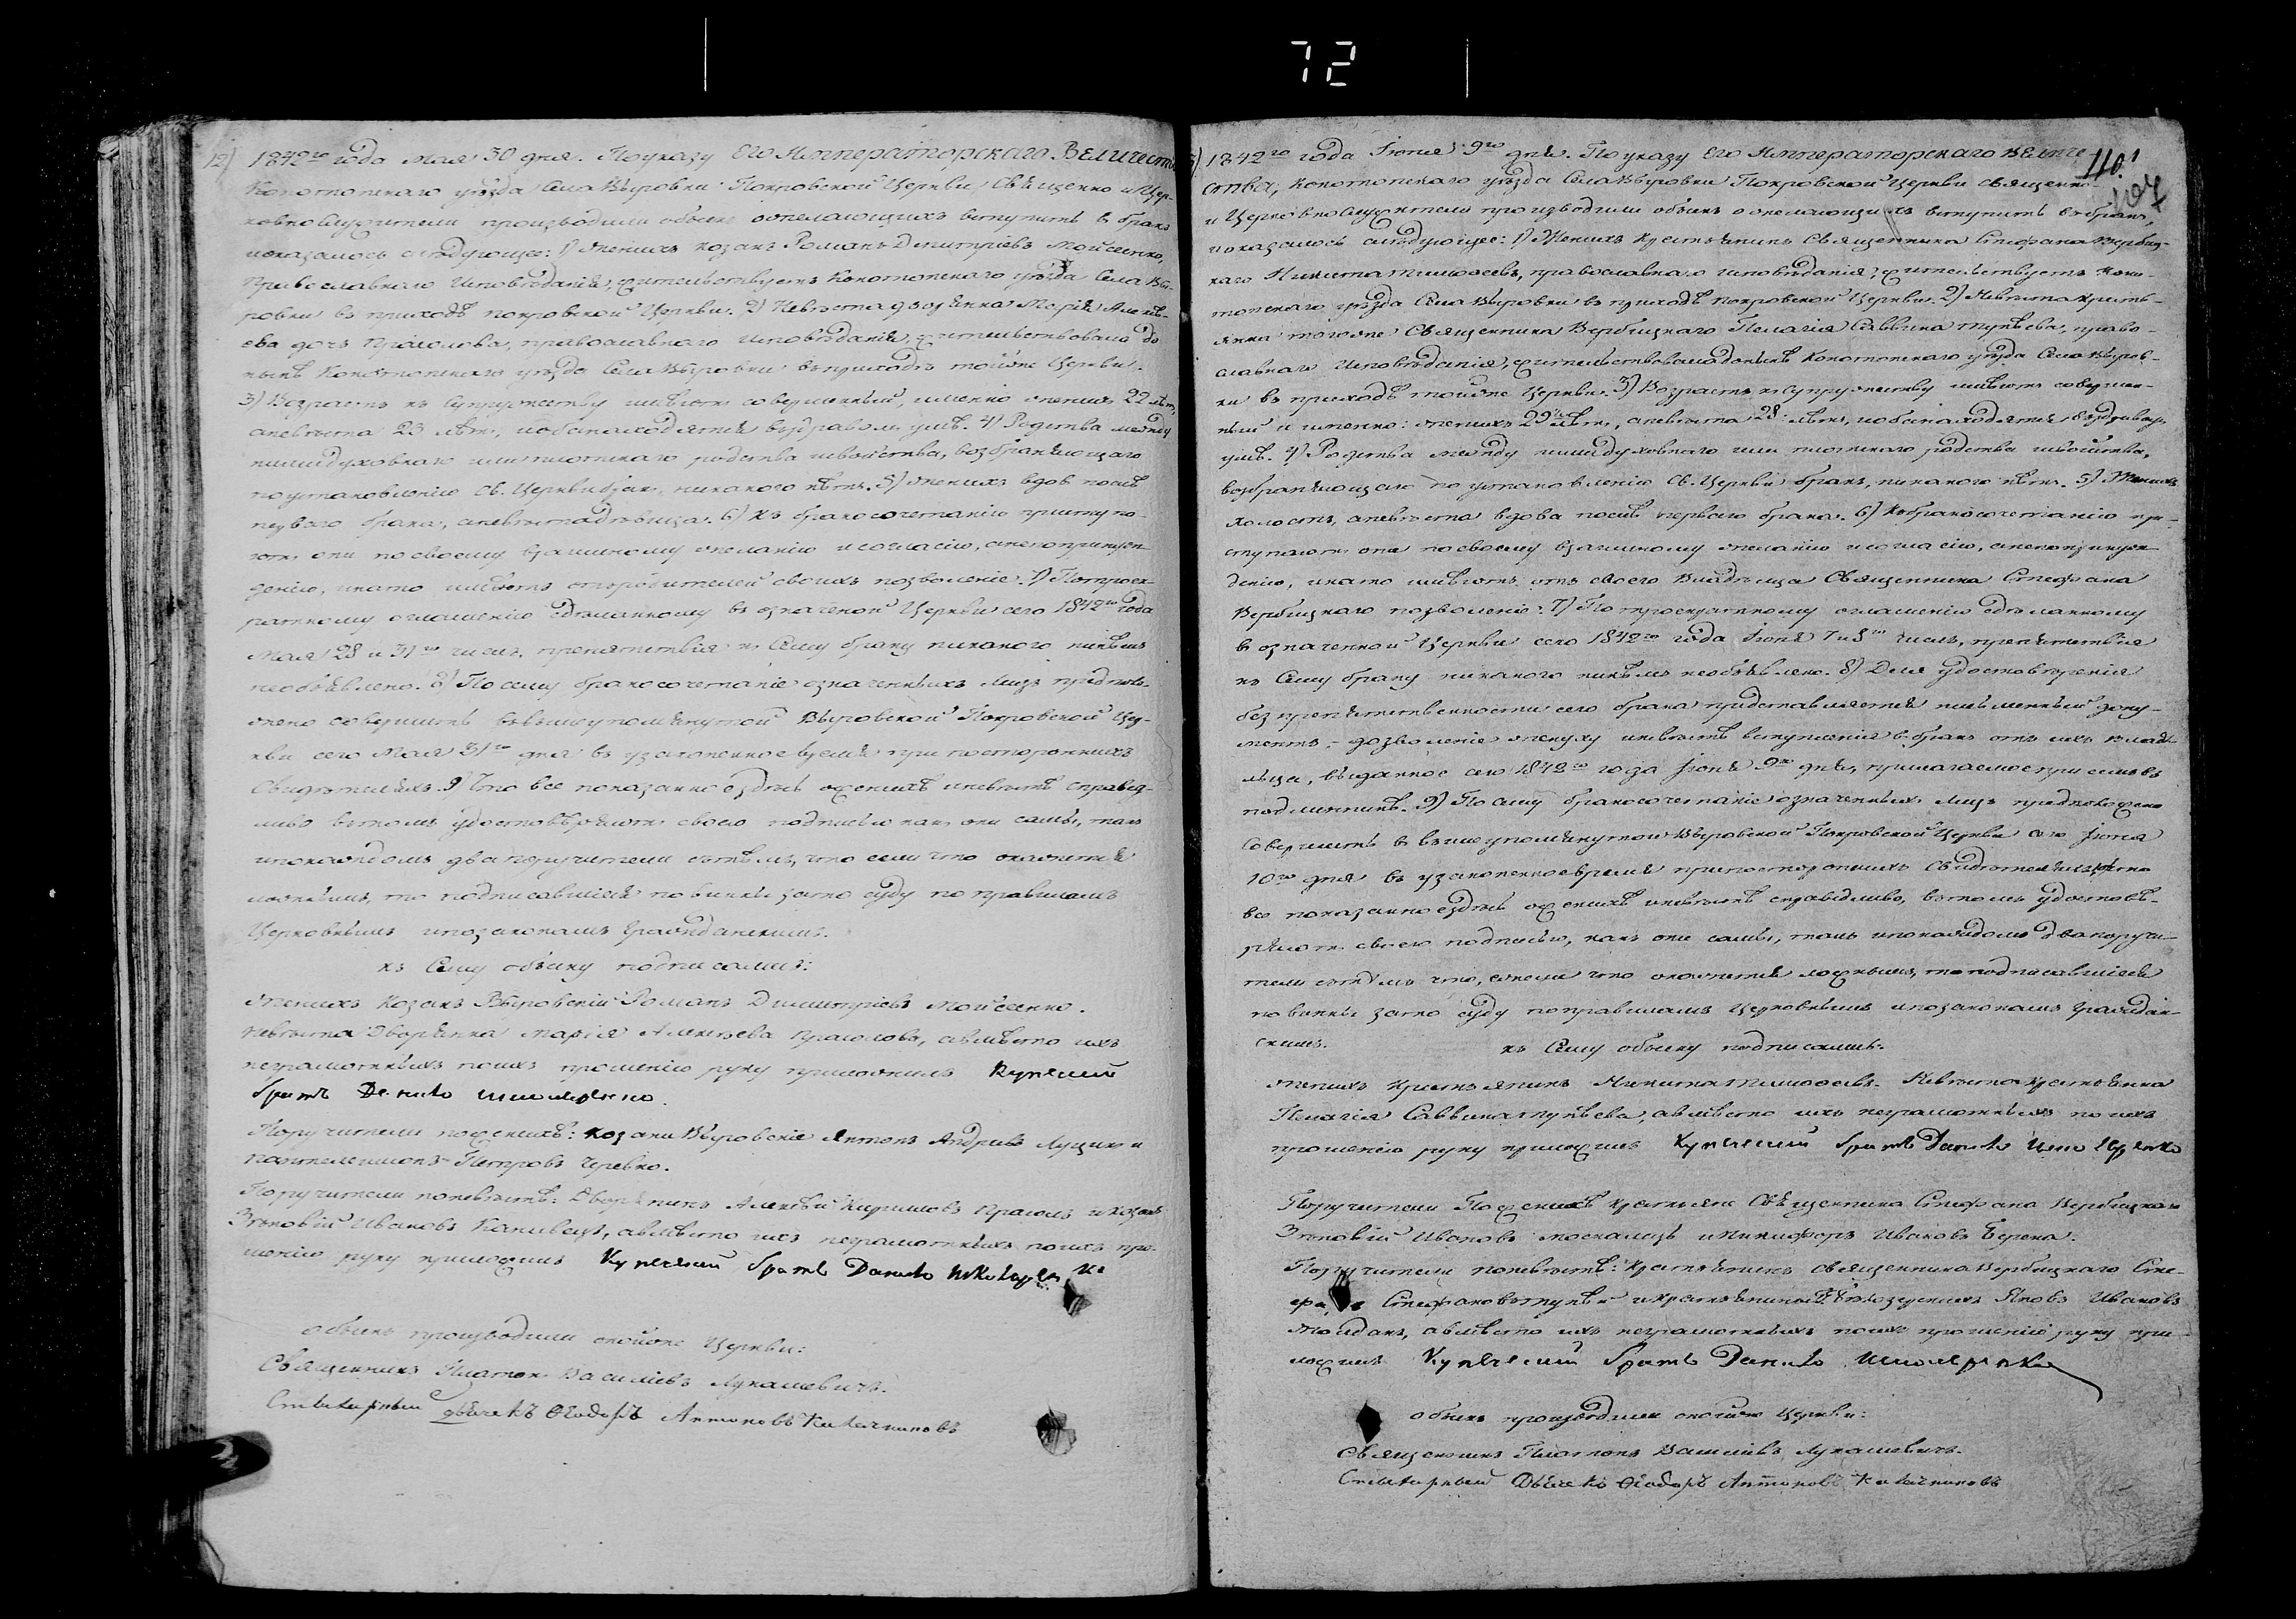 72
12) 1842го года мая 30 дня. По указу Его Императорскаго Величества
Конотопскаго уѣзда Села Выровки Покровской Церкви, Священно и Цер-
ковнослужители производили обыскъ о желающихъ вступить в бракъ
и оказалось слѣдующее: 1) Женихъ козакъ Романъ Димитріевъ Мойсеенко,
Православнаго Исповѣданія, жительствуетъ Конотопскаго уѣзда Села Вы-
ровки въ приходѣ покровской Церкви. 2) Невѣста дворянка Марія Алексѣ-
ева дочь православнаго Исповѣданія, жительствовала до
нынѣ Конотопскаго уѣзда Села Выровки въ приходѣ тойже Церкви.
3) Возрастъ къ Супружеству имѣютъ совершенный, именно женихъ 22 лѣтъ,
а невѣста 23 лѣтъ, и оба находятся въ здравомъ умѣ. 4) Родства между
ними духовнаго или плотскаго родства и свойства, возбраняющаго
по установленію Св. Церкви бракъ, никакого нѣтъ. 5) Женихъ вдов послѣ
перваго брака, а невѣста дѣвица. 6) Къ бракосочетанію приступа-
ютъ они по своему взаимному желанію и согласію, а не по принуж-
денію, и на то имѣютъ отъ родителей своихъ позволеніе. 7) По троек-
ратному оглашенію сдѣланному въ означеной Церкви сего 1842го года
Мая 28 и 31го числъ, препятствія къ Сему браку никакого никѣмъ
необъявлено. 8) По сему бракосочетаніе означенныхъ лицъ предполо-
жено совершить въ вышеупомянутой Выровской Покровской Цер-
кви сего Мая 31го дня въ узаконенное время при постороннихъ
Свидѣтеляхъ. 9) Что все показанное здѣсь о женихѣ и невѣстѣ справед-
ливо въ томъ удостовѣряютъ своею подписью какъ они сами, такъ
и по каждомъ два поручители съ тѣмъ, что если что окажется
ложнымъ, то подписавшіеся повинны за то суду по правиламъ
Церковнымъ и по законамъ Гражданскимъ.
къ Сему обыску подписались:
Женихъ Козакъ Выровскій Романъ Димитріевъ Мойсеенко.
Невѣста Дворянка Марія Алексѣева а вмѣсто ихъ
неграмотныхъ по ихъ прошенію руку приложилъ Купеческій
братъ Данило
Поручители по женихѣ: козаки Выровскіе Антонъ Андреевъ Луцикъ и
Пантелеимонъ Петровъ Черевко.
Поручители по невѣстѣ: Дворянинъ Алексѣй Кириловъ и козакъ
Зѣновій Ивановъ Каниведъ, а вмѣсто ихъ неграмотныхъ по ихъ про-
шенію руку приложилъ Купеческій братъ Данило
обыскъ производили онойже Церкви:
Священникъ Платонъ Василіевъ Лукашевичъ.
Стихарный дьячекъ Ѳеодоръ Антоновъ Калачниковъ
110.
107
1842го года Іюня 9го дня. По указу Его Императорскаго Величе-
ства, Конотопскаго уѣзда Села Выровки Покровской Церкви священно
и Церковнослужители производили обыскъ о желающихъ вступить въ бракъ,
и оказалось слѣдующее: 1) Женихъ крестьянинъ Священника Стефана Вербиц-
каго Никита Тимофеевъ, православнаго исповѣданія, жительствуетъ Коно-
топскаго уѣзда Села Выровки въ приходѣ Покровской Церкви. 2) Невѣста кресть-
янка тогоже Священника Вербицкаго Пелагія Саввина право-
славнаго Исповѣданія, жительствовала донынѣ Конотопскаго уѣзда Села Выров-
ки въ приходѣ тойже Церкви. 3) Возрастъ къ супружеству имѣютъ совершен-
ный и именно: женихъ 22 лѣтъ, а невѣста 28 лѣтъ, и оба находятся в здравомъ
умѣ. 4) Родства между ними духовнаго или плотскаго родства и свойства,
возбраняющаго по установленію Св. Церкви бракъ, никакого нѣтъ. 5) Женихъ
холостъ, а невѣста вдова послѣ перваго брака. 6) Къ бракосочетанію при-
ступаютъ они по своему взаимному желанію и согласію, а не по принуж-
денію, и на то имѣютъ отъ своего Владѣльца Священника Стефана
Вербицкаго позволеніе. 7) По троекратному оглашенію сдѣланному
в означенной Церкви сего 1842го года Іюня 7 и 8го числъ, препятствія
къ Сему браку никакого никѣмъ необъявлено. 8) Для удостовѣренія
безпрепятственности сего брака представляется письменный доку-
ментъ: дозволеніе жениху и невѣстѣ вступленія в бракъ отъ ихъ владѣ-
льца, выданное сего 1842го года Іюня 9го дня, прилагаемое при семъ въ
подлинникѣ. 9) По сему бракосочетаніе означенныхъ лицъ предположено
Совершить в вышеупомянутой Выровской Покровской Церкви сего Іюня
10го дня въ узаконенное время при постороннихъ Свидѣтеляхъ. что
все показанное здѣсь о женихѣ и невѣстѣ справедливо, въ томъ удостовѣ-
ряютъ своею подписью, какъ они сами, такъ и по каждомъ два поручи-
тели съ тѣмъ что, ежели что окажется ложнымъ, то подписавшіеся
повинны за то суду по правиламъ Церковнымъ и по законамъ Граждан-
скимъ. къ Сему обыску подписались:
Женихъ Крестьянинъ Никита Тимофеевъ. Невѣста крестьянка
Пелагія Саввина а вмѣсто ихъ неграмотныхъ по ихъ
прошенію руку приложилъ Купеческій братъ Данило
Поручители По женихѣ крестьяне Священника Стефана Вербицкаго
Зѣновій Ивановъ Москалецъ и Никифоръ Ивановъ Берека.
Поручители по невѣстѣ: крестьянинъ Священника Вербицкаго Сте-
фанъ Стефановъ и крестьянинъ Яковъ Ивановъ
а вмѣсто ихъ неграмотныхъ по ихъ прошенію руку при-
ложилъ Купеческій братъ Данило
обыскъ производили онойже Церкви:
Священникъ Платонъ Василіевъ Лукашевичъ.
Стихарный Дьячекъ Ѳеодоръ Антоновъ Калачниковъ